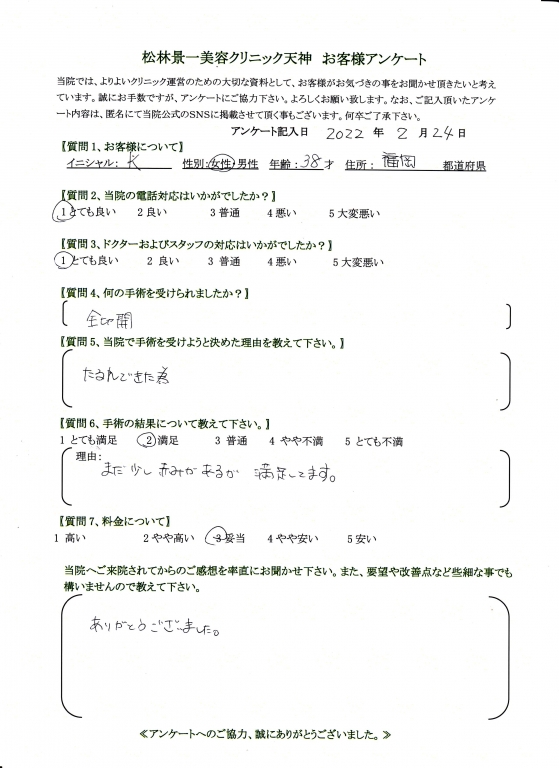 松林景一美容クリニック天神 お客様アンケート
当院では、よりよいクリニック運営のための大切な資料として、お客様がお気づきの事をお聞かせ頂きたいと考え
ています。誠にお手数ですが、アンケートにご協力下さい。よろしくお願い致します。なお、ご記入頂いたアンケ
ート内容は、匿名にて当院公式のSNSに掲載させて頂く事もございます。何卒ご了承下さい。
アンケート記入日 2022 年 2 月 24 日
【質問1、お客様について】
イニシャル: K 性別:女性・男性 年齢:38才 住所: 福岡 都道府県
【質問2、当院の電話対応はいかがでしたか?】
1とても良い 2 良い 3 普通 4 悪い 5 大変悪い
【質問3、ドクターおよびスタッフの対応はいかがでしたか?】
1とても良い 2 良い 3 普通 4 悪い 5 大変悪い
【質問4、何の手術を受けられましたか?】
全切開
【質問5、当院で手術を受けようと決めた理由を教えて下さい。】
たるんできた為
【質問6、手術の結果について教えて下さい。】
1 とても満足 2 満足 3 普通 4 やや不満 5 とても不満
理由:
まだ少し赤みがあるが 満足してます。
【質問7、料金について】
1 高い 2 やや高い 3 妥当 4 やや安い 5 安い
当院へご来院されてからのご感想を率直にお聞かせ下さい。また、要望や改善点など些細な事でも
構いませんので教えて下さい。
ありがとうございました。
≪アンケートへのご協力、誠にありがとうございました。≫